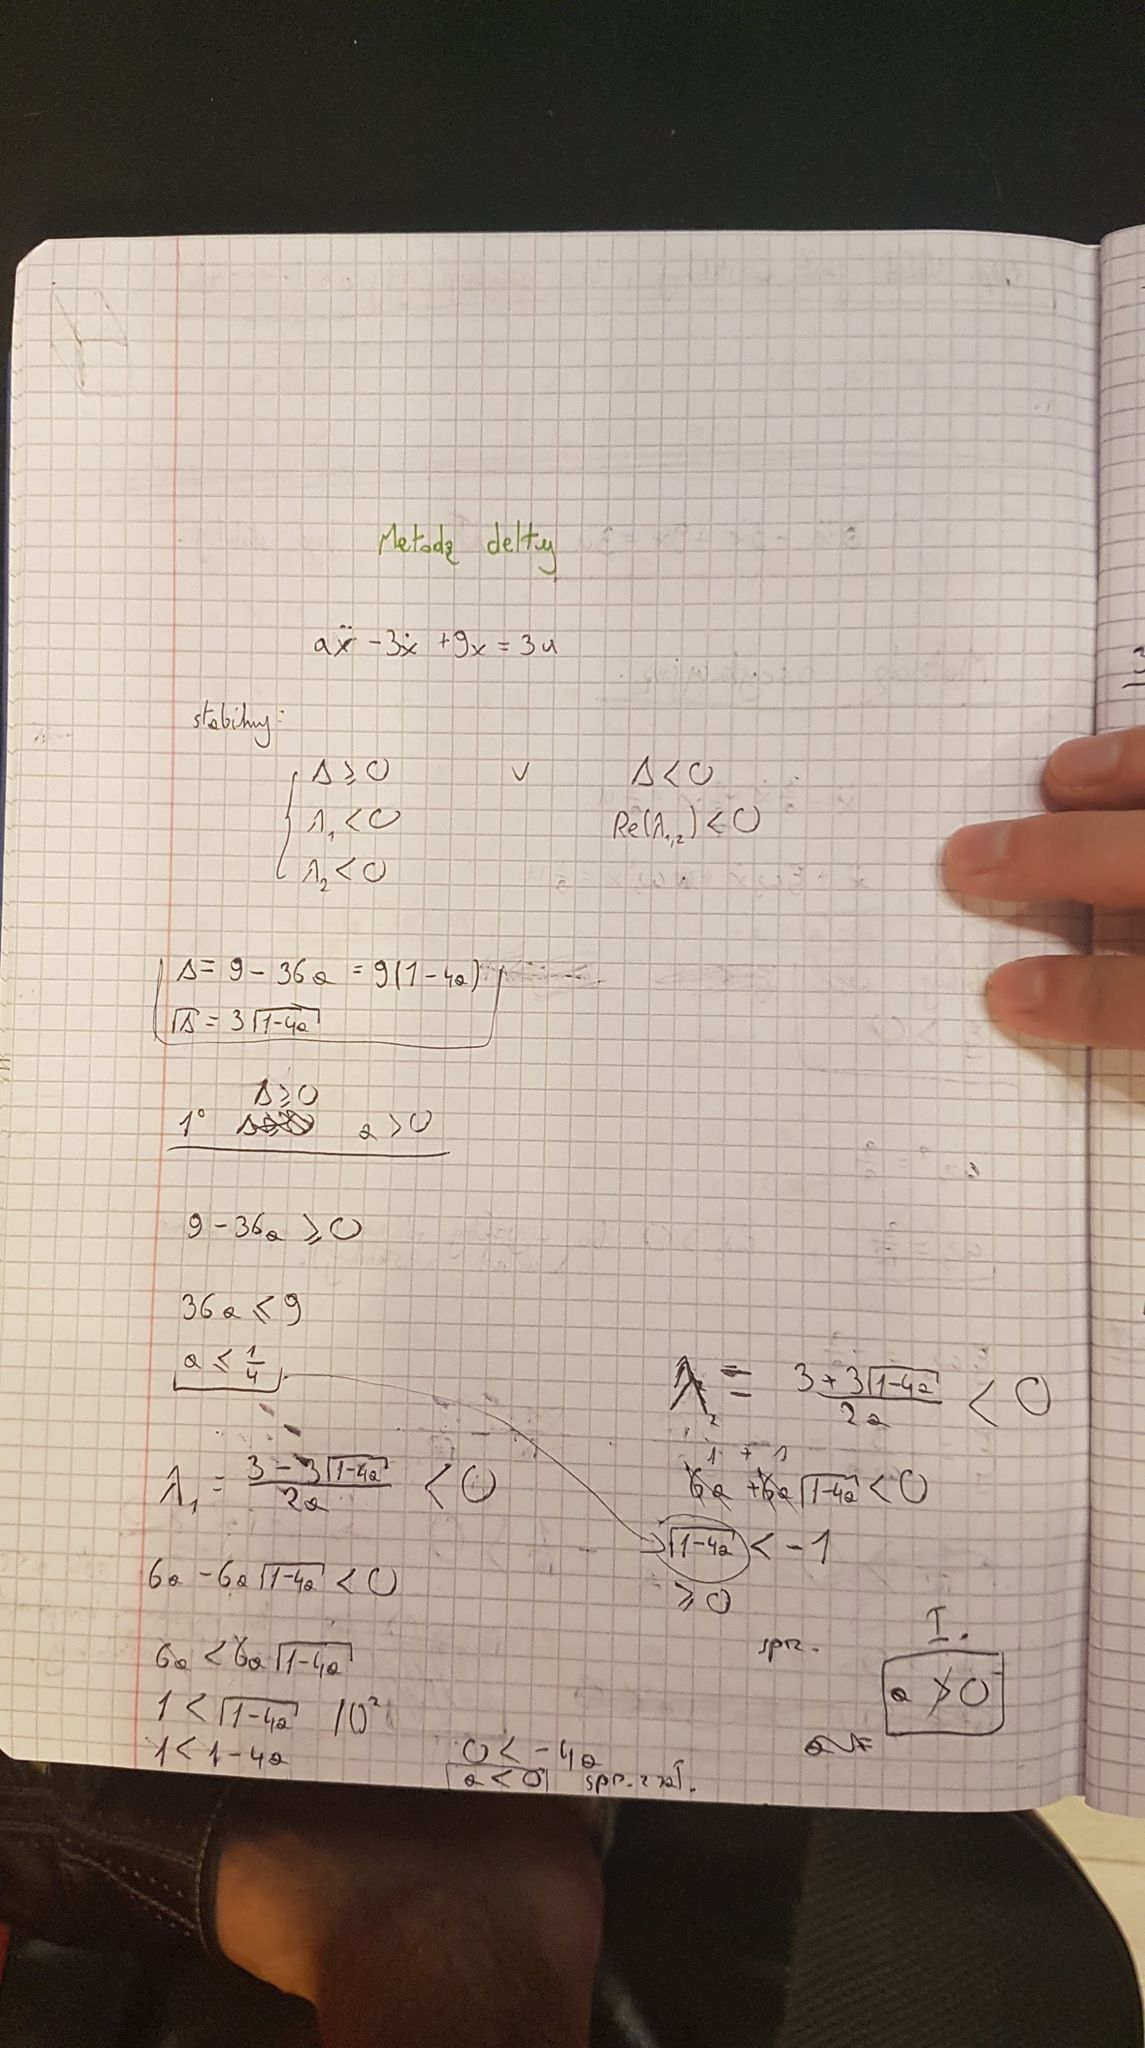 Metodą delty
aẍ - 3ẋ + 9x = 3u
stabilny:
Δ ≥ 0 ∨ Δ < 0
λ₁ < 0 Re(λ₁,₂) < 0
λ₂ < 0
Δ = 9 - 36a = 9(1-4a)
√Δ = 3√(1-4a)
Δ ≥ 0
1° a > 0
9 - 36a ≥ 0
36a ≤ 9
a ≤ 1/4
λ₁ = (3 - 3√(1-4a))/(2a) < 0
6a - 6a√(1-4a) < 0
6a < 6a√(1-4a)
1 < √(1-4a) /()²
1 < 1-4a
0 < -4a
a < 0 spr. z zał.
λ₂ = (3 + 3√(1-4a))/(2a) < 0
1 + 1
6a + 6a√(1-4a) < 0
√(1-4a) < -1
≥ 0
spr.
I.
a ≯ 0